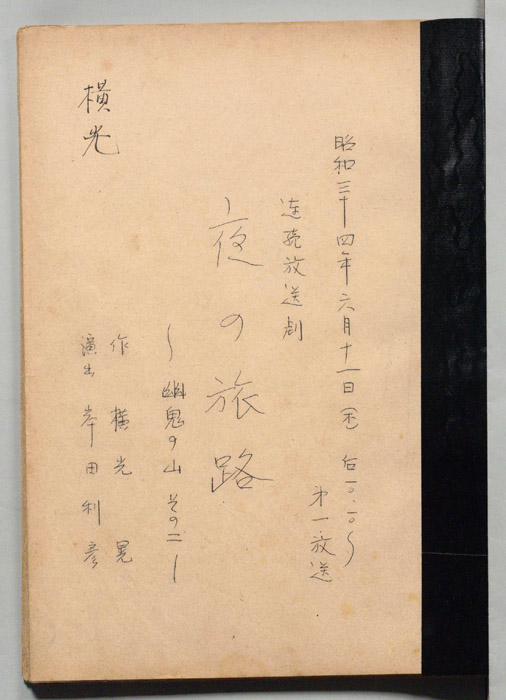 昭和三十四年六月十一日(木) 后一〇.一〇〜
第一放送
連続放送劇
夜の旅路
〜幽鬼の山 その二〜
作 横光 晃
演出 岸田利彦
横光